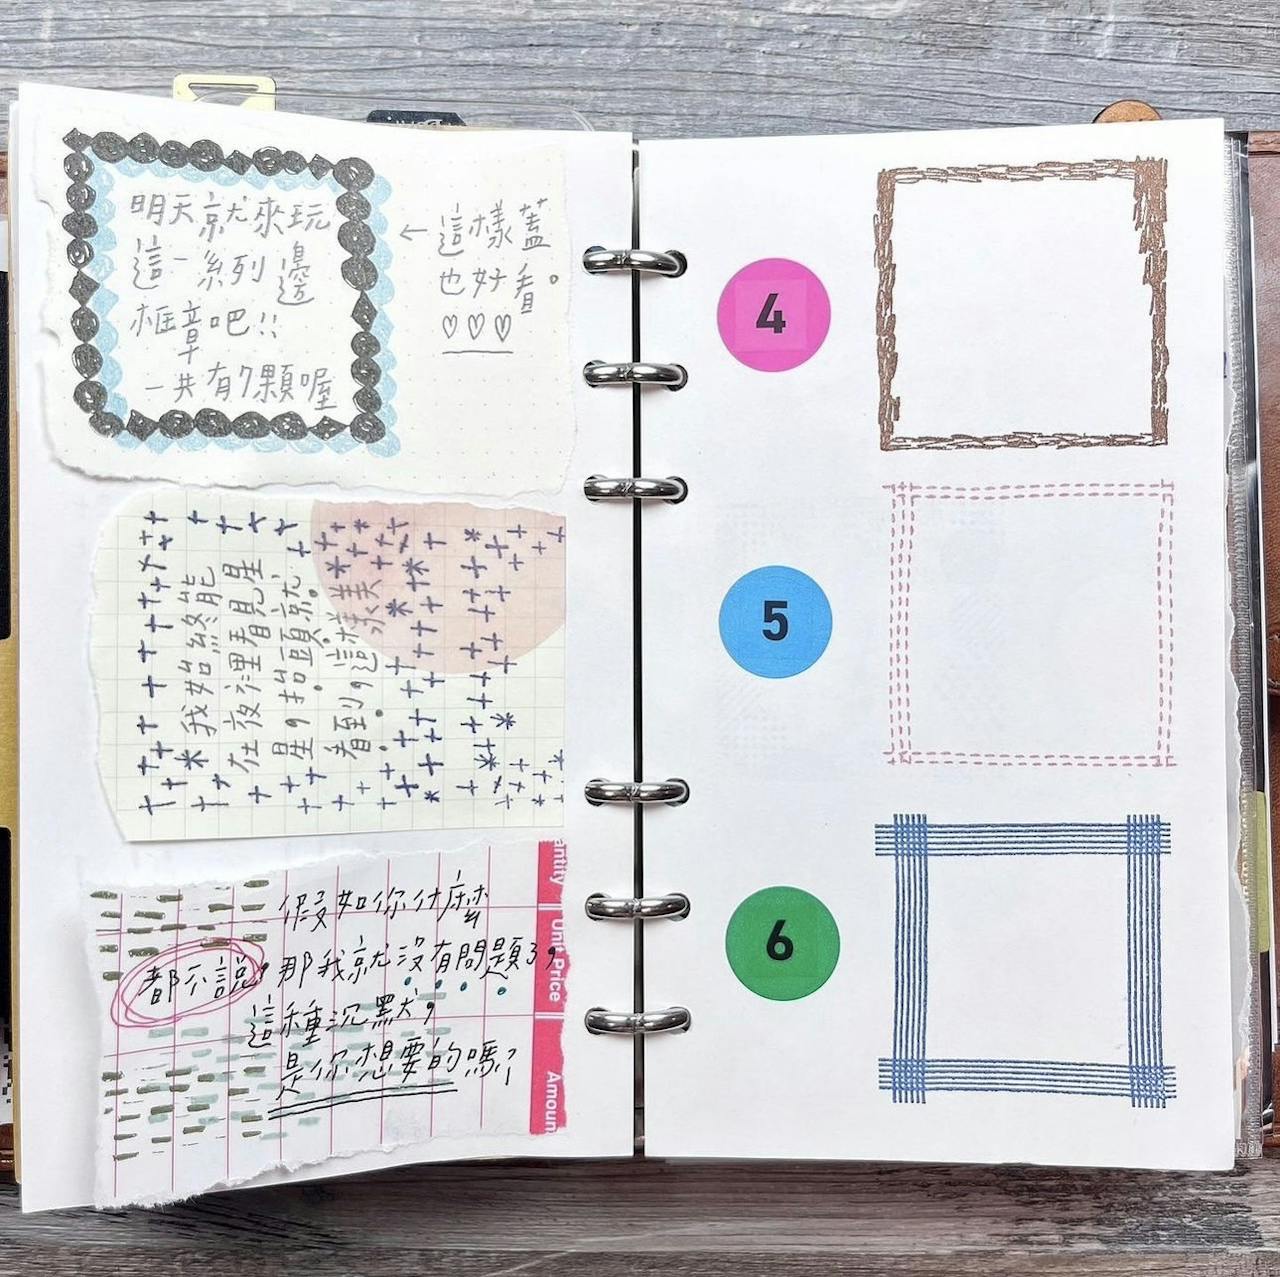 明天就來玩
這一系列邊
框章吧!!
一共有7顆喔
←這樣蓋
也好看。
♡♡♡
我始終能
在夜裡看見星
星，抬頭就
看到，這樣美。
假如你什麼
都不說，那我就沒有問題了，
這種沉默，
是你想要的嗎？
Unit Price
4
5
6